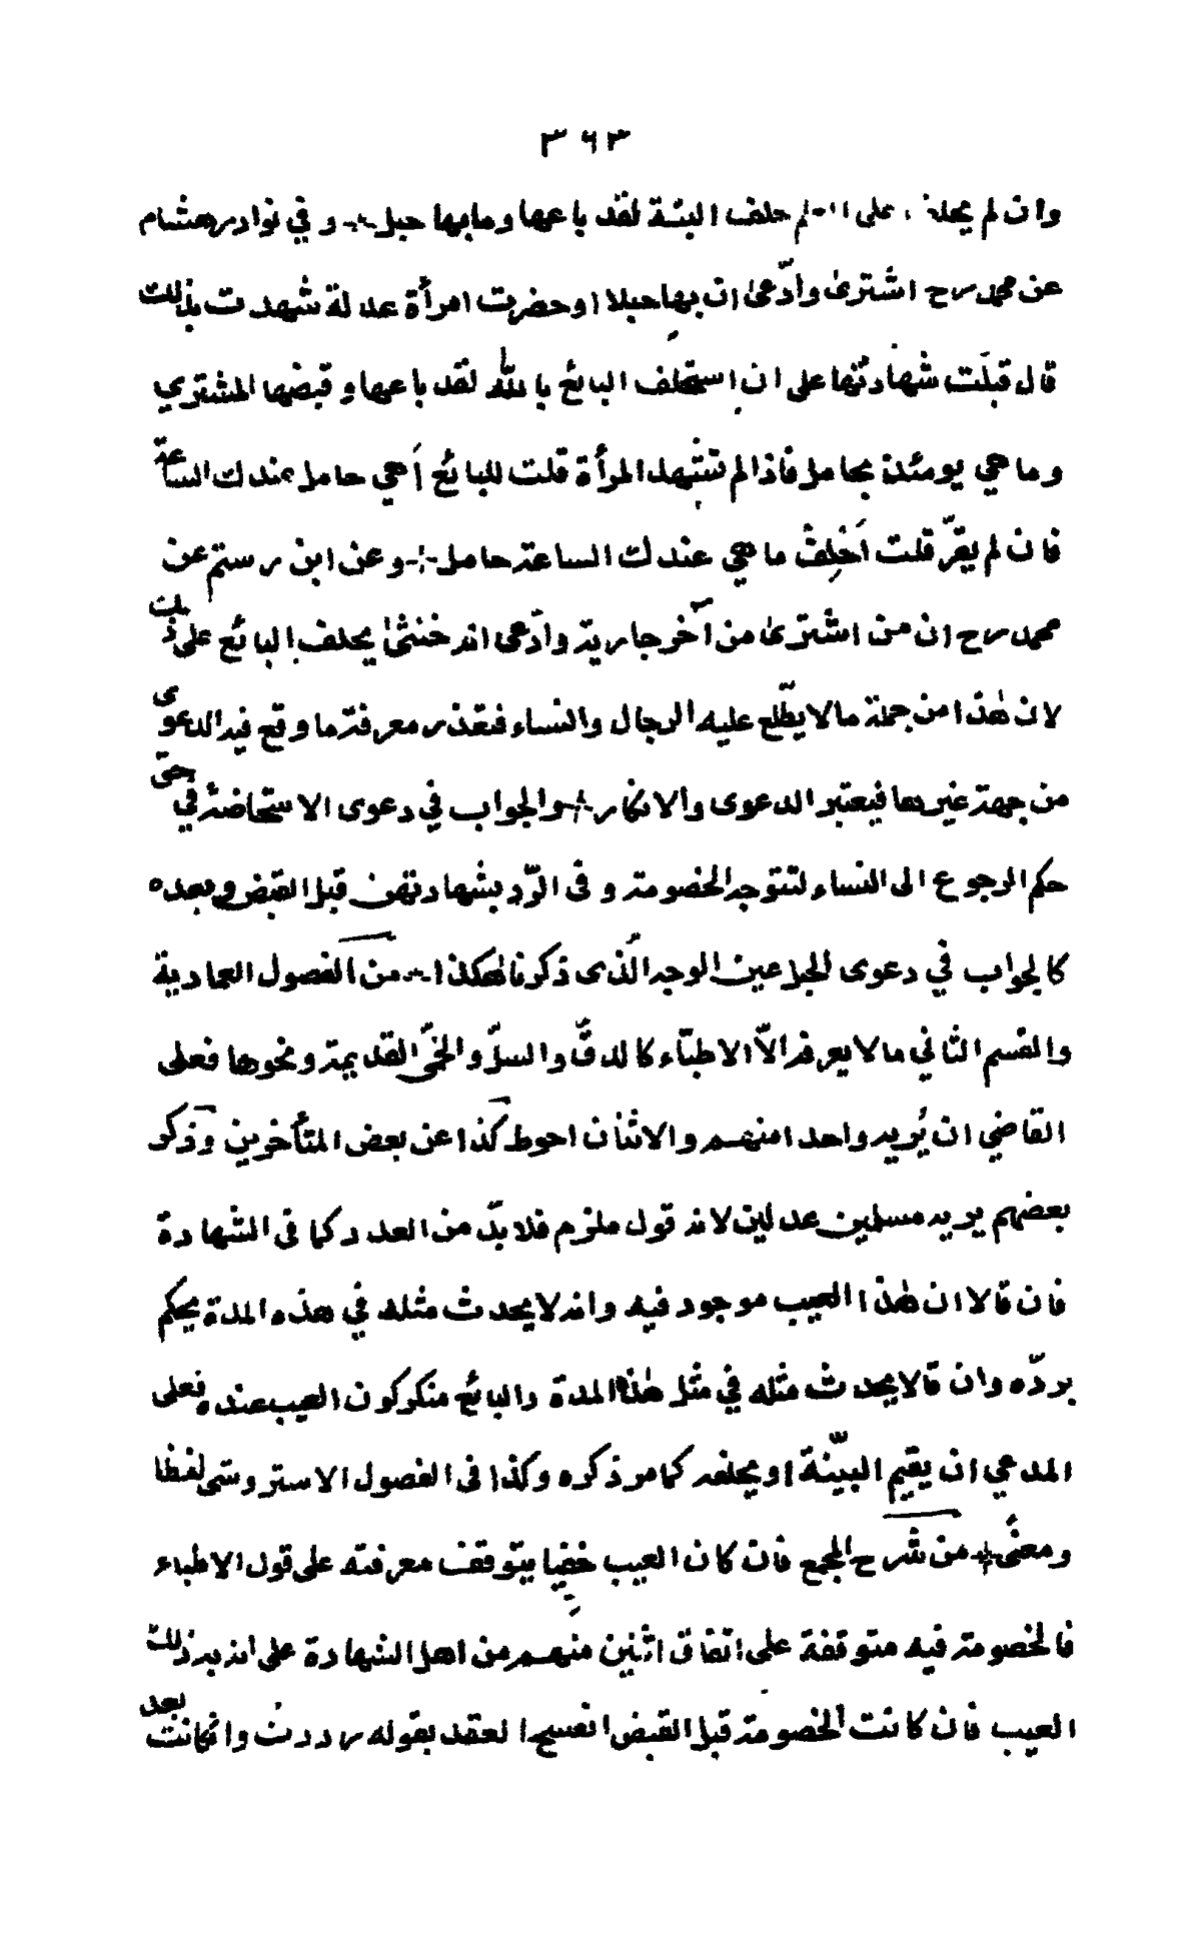 ٣٦٣
وان لم يحلف على العلم حلف البتة لقد باعها وما بها حبل وفي نوادر هشام
عن محمد رح اشترى وادّعى ان بها حبلا اوحضرت امرأة عدلة شهدت بذلك
قال قبلَت شهادتها على ان استحلف البائع بالله لقد باعها وقبضها المشتري
وما هي يومئذ بحامل فاذا لم تشهد المرأة قلت للبائع أهي حامل عندك الساعة
فان لم يقرّ قلت أحْلِفْ ما هي عندك الساعة حامل وعن ابن رستم عن
محمد رح ان من اشترى من آخر جارية وادّعى انه خنثى يحلف البائع على ذلك
لان هٰذا من جملة ما لا يطّلع عليه الرجال والنساء فتعذر معرفة ما وقع فيه الدعوى
من جهة غيرها فيعتبر الدعوى والانكار والجواب في دعوى الاستحاضة في حق
حكم الرجوع الى النساء لتتوجه الخصومة وفى الرّد بشهادتهن قبل القبض وبعده
كالجواب في دعوى الحبل عين الوجه الّذى ذكرنا هكذا من الفصول العمادية
والقسم الثاني ما لا يعرفه الاّ الاطبّاء كالدقّ والسلّ والحمّى القديمة ونحوها فعلى
القاضي ان يُريه واحدا منهم والاثنان احوط كذا عن بعض المتأخرين وذكر
بعضهم يريه مسلمين عدلين لانه قول ملزم فلا بدّ من العدد كما فى الشهادة
فان قالا ان هٰذا العيب موجود فيه وانه لا يحدث مثله في هذه المدة يحكم
بردّه وان قالا يحدث مثله في مثل هٰذه المدة والبائع منكر كون العيب عنده فعلى
المدعي ان يقيم البيّنة او يحلفه كما مر ذكره وكذا فى الفصول الاستروشى لفظا
ومعنًى من شرح المجمع فان كان العيب خفيا يتوقف معرفته على قول الاطباء
فالخصومة فيه متوقفة على اتفاق اثنين منهم من اهل الشهادة على انه به ذلك
العيب فان كانت الخصومة قبل القبض انفسخ العقد بقوله رددت وان كانت بعد